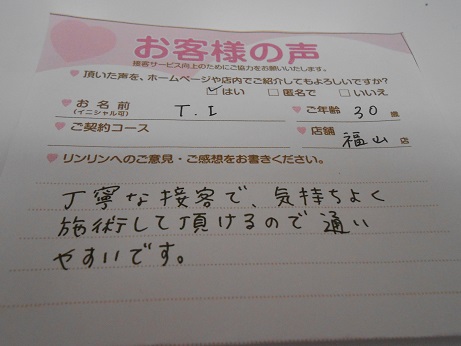 お客様の声
接客サービス向上のためにご協力をお願いいたします。
頂いた声を、ホームページや店内でご紹介してもよろしいですか?
はい 匿名で いいえ
お名前 (イニシャル可) T.I ご年齢 30 歳
ご契約コース 店舗 福山 店
リンリンへのご意見・ご感想をお書きください。
丁寧な接客で、気持ちよく
施術して頂けるので通い
やすいです。